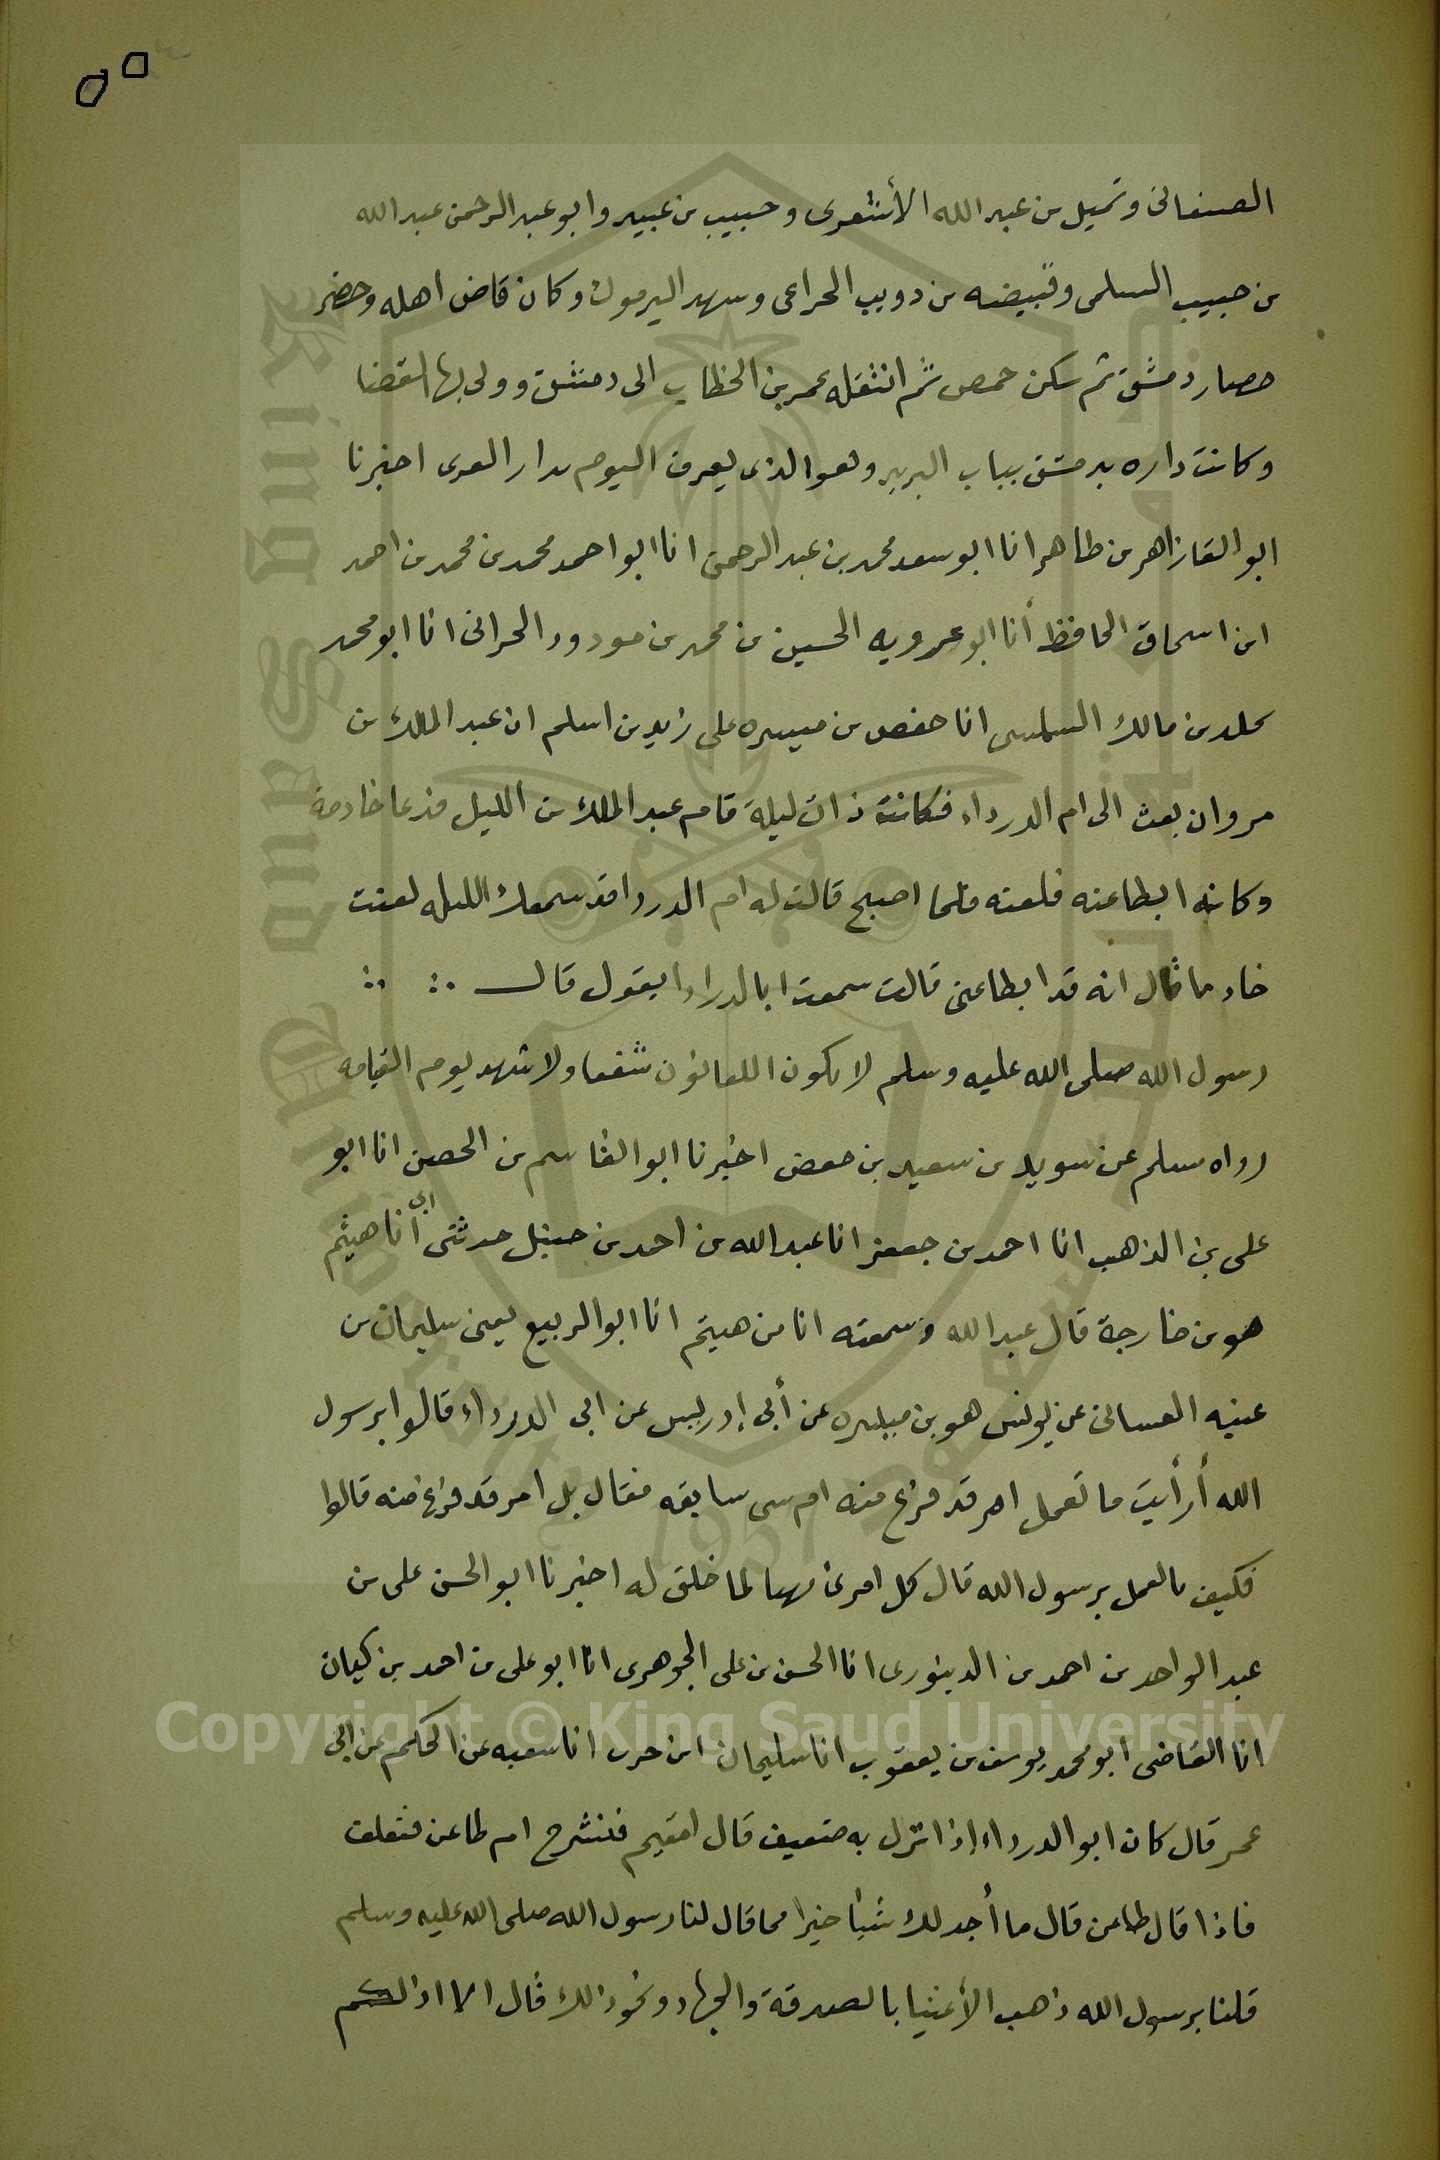 ٥٥
الصنعانى وثميل بن عبد الله الأشعرى وحبيب بن عبيد وابو عبد الرحمن عبد الله
بن حبيب السلمى وقبيضه بن دويب الحراعى وسهد اليرموك وكان قاض اهله وحضر
حصار دمشق ثم سكن حمص ثم انتقله عمر بن الخطاب الى دمشق وولى بها القضا
وكانت داره بدمشق بباب البريد وهو الذى يعرف اليوم بدار العرى اخبرنا
ابو القا زاهر بن طاهر انا ابو سعد محمد بن عبد الرحمن انا ابو احمد محمد بن محمد بن احمد
ابن اسحاق الحافظ أنا ابو عرويه الحسين بن محمد بن مودود الحرانى انا ابو محمد
محلد بن مالك السلمسى انا حفص بن ميسره على زيد بن اسلم ان عبد الملك بن
مروان بعث الى ام الدرداء فكانت ذات ليلة قام عبد الملك من الليل فدعا خادمة
وكانه ابطا عنه فلعنه فلما اصبح قالت له ام الدردا قد سمعك الليله لعنت
خادما قال انه قد ابطا عنى قالت سمعت ابا الدرداا يقول قال
رسول الله صلى الله عليه وسلم لا يكون اللعانون شفعا ولا شهد يوم القيامه
رواه مسلم عن سويد بن سعيد بن حفص اخبرنا ابو القاسم بن الحصين انا ابو
على بن الذهب انا احمد بن جعفر انا عبد الله بن احمد بن حنبل حدثتى ابى أنا هيثم
هو بن خارجة قال عبد الله وسمعته انا من هيثم انا ابو الربيع يعنى سليمان بن
عتبه الغسانى عن يونس هو بن ميسره عن أبى إدريس عن ابى الدرداء قالوا يرسول
الله أرأيت ما نعمل امر قد فرغ منه ام سى سابقه فقال بل امر قد فرغ منه قالوا
فكيف بالعمل يرسول الله قال كل امرئ مهيا لما خلق له اخبرنا ابو الحسن على بن
عبد الواحد بن احمد بن الدينورى انا الحسن بن على الجوهرى انا ابو على بن احمد بن كيان
انا القاضى ابو محمد يوسف بن يعقوب انا سليمان ابن حرب انا سعبه عن الحكم عن ابى
عمر قال كان ابو الدرداء إذا نزل به ضعيف قال امقيم فنشرح ام طاعن فنعلف
فاذا قال طاعن قال ما أجد لك شيأ خيرا مما قال لنا رسول الله صلى الله عليه وسلم
قلنا يرسول الله ذهب الأغنيا بالصدقة والجهاد ونحو ذالك قال الا ادلكم
Copyright © King Saud University
King Saud University
جامعة الملك سعود
1957